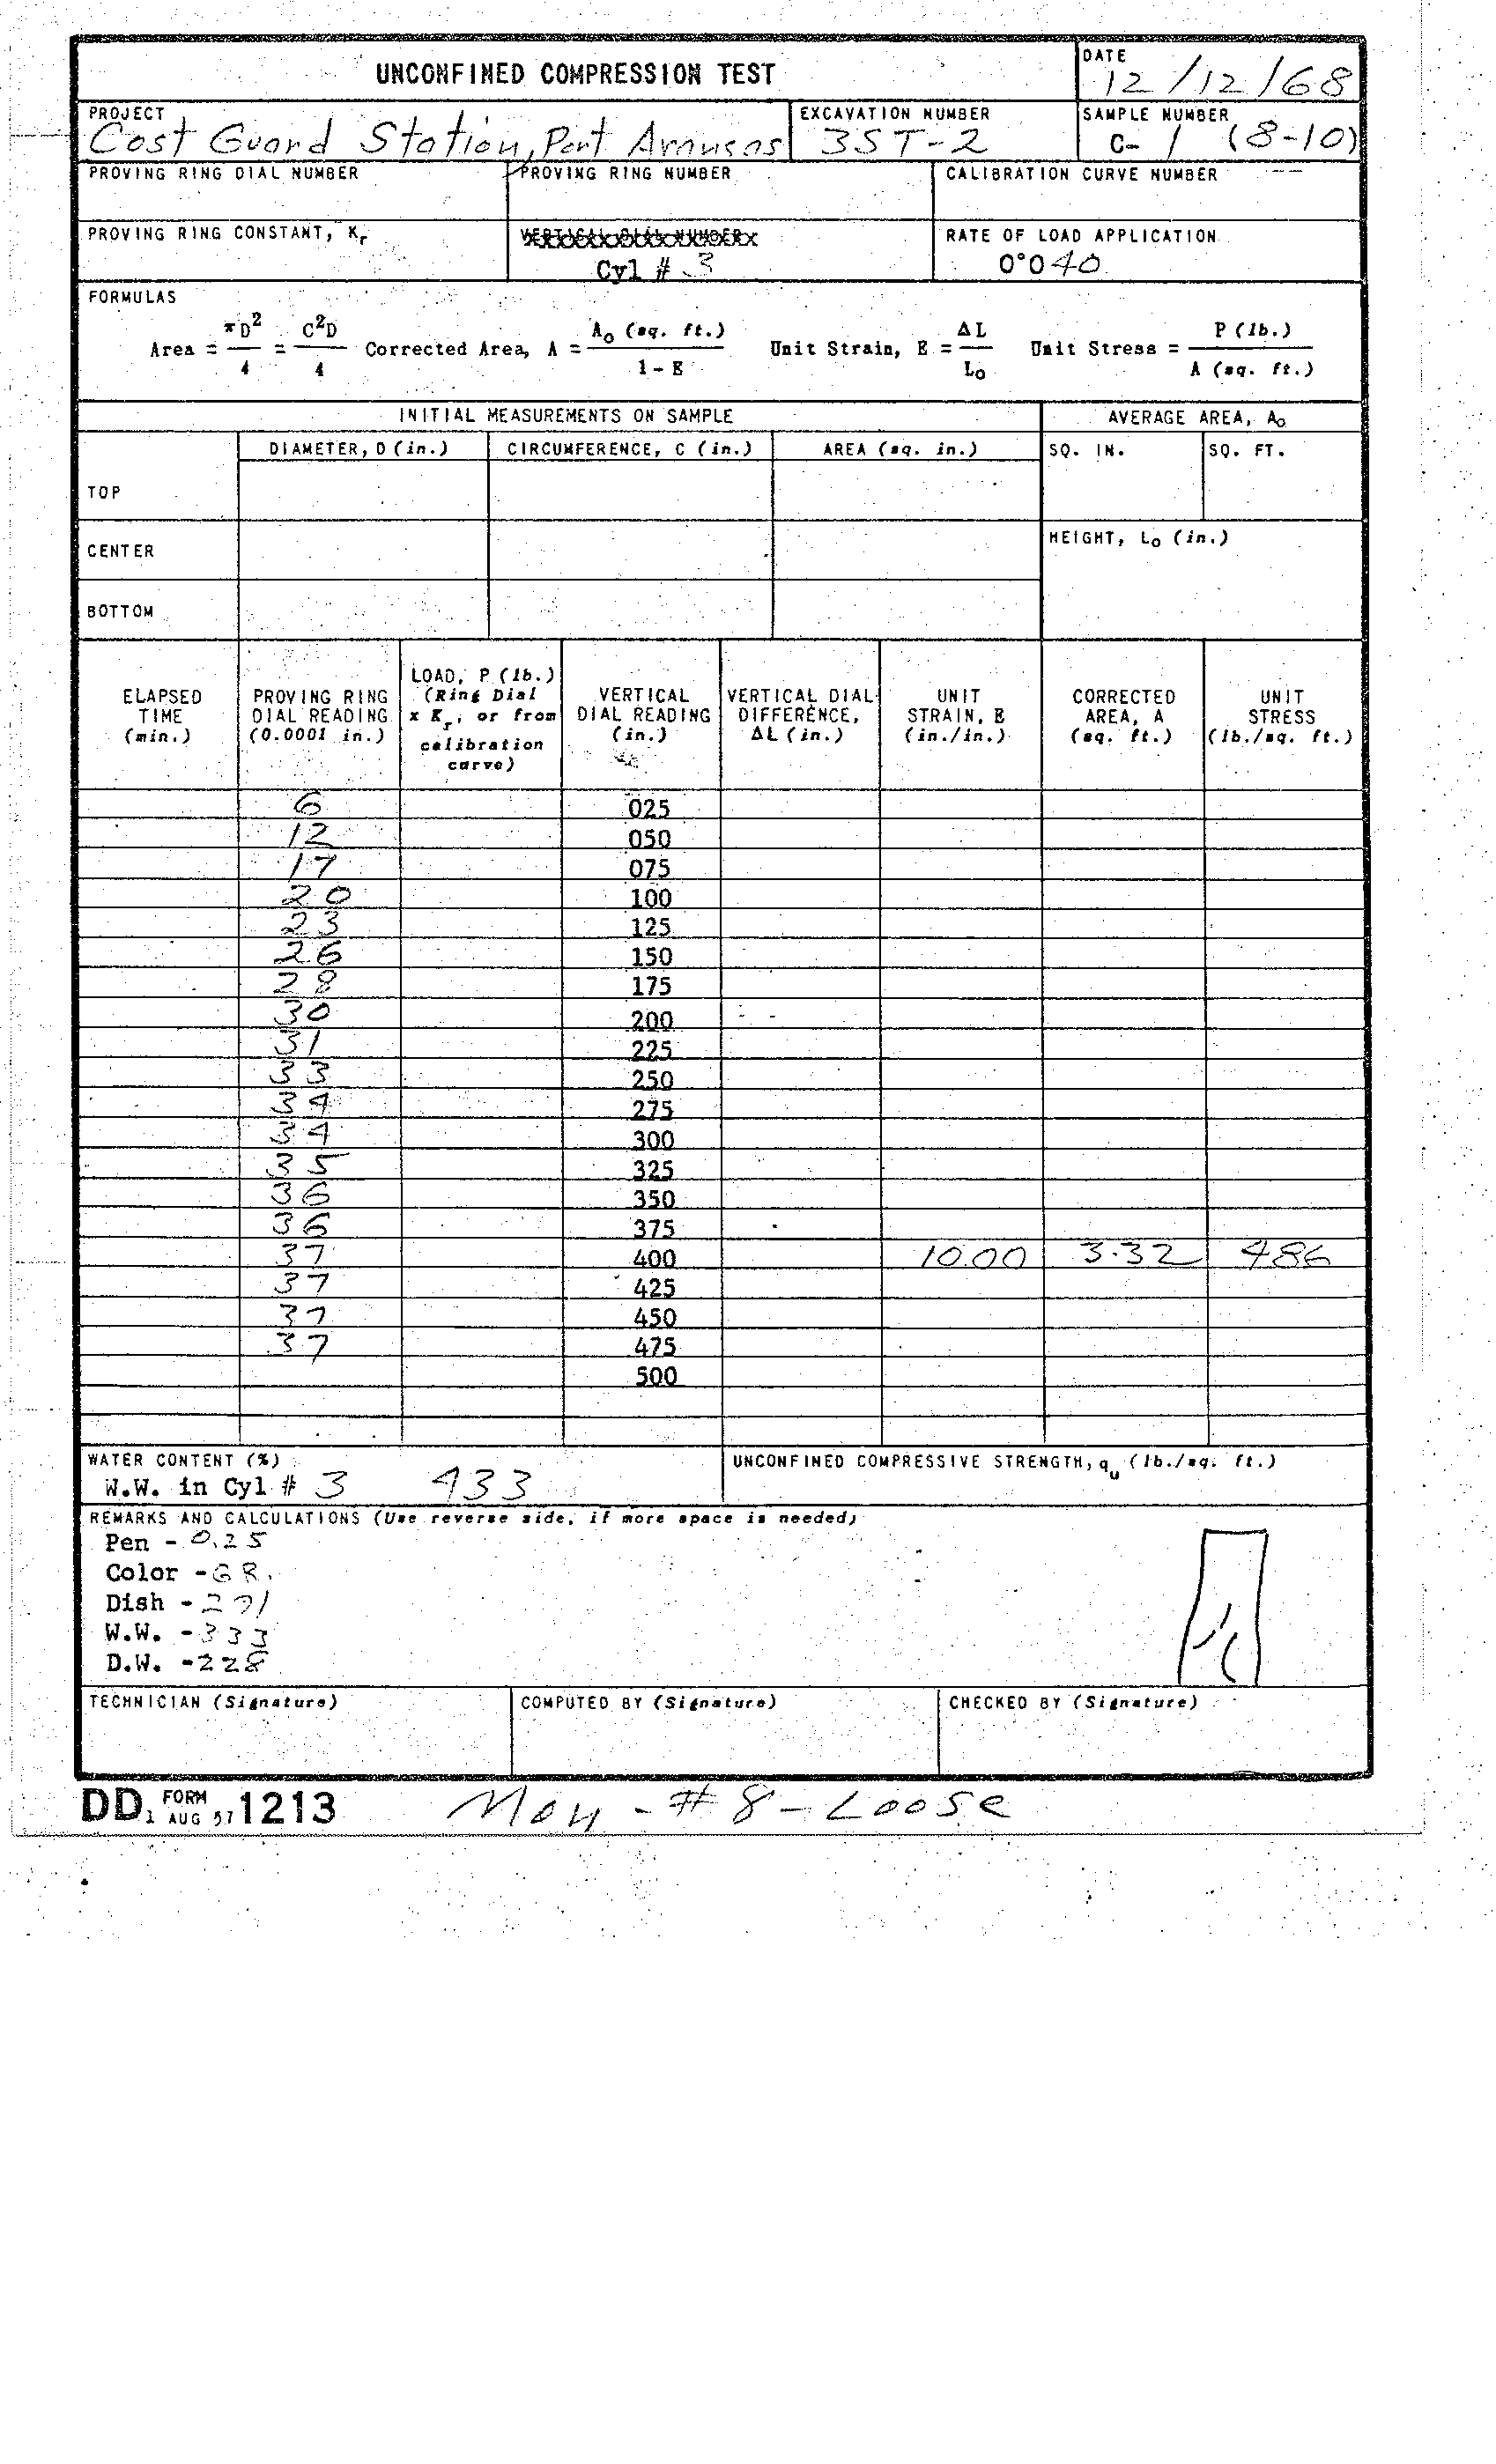 UNCONFINED COMPRESSION TEST
DATE
12/12/68
PROJECT
Cost Guard Station, Port Aransas
EXCAVATION NUMBER
3ST-2
SAMPLE NUMBER
C- 1 (8-10)
PROVING RING DIAL NUMBER
PROVING RING NUMBER
CALIBRATION CURVE NUMBER
PROVING RING CONSTANT, Kr
Cyl # 3
RATE OF LOAD APPLICATION
0°040
FORMULAS
Area = πD²/4 = C²D/4 Corrected Area, A = A₀ (sq. ft.)/1 - E Unit Strain, E = ΔL/L₀ Unit Stress = P (lb.)/A (sq. ft.)
INITIAL MEASUREMENTS ON SAMPLE
AVERAGE AREA, A₀
DIAMETER, D (in.) CIRCUMFERENCE, C (in.) AREA (sq. in.) SQ. IN. SQ. FT.
TOP
CENTER
HEIGHT, L₀ (in.)
BOTTOM
ELAPSED TIME (min.)
PROVING RING DIAL READING (0.0001 in.)
LOAD, P (lb.) (Ring Dial x Kr, or from calibration curve)
VERTICAL DIAL READING (in.)
VERTICAL DIAL DIFFERENCE, ΔL (in.)
UNIT STRAIN, E (in./in.)
CORRECTED AREA, A (sq. ft.)
UNIT STRESS (lb./sq. ft.)
6 025
12 050
17 075
20 100
23 125
26 150
28 175
30 200
31 225
33 250
34 275
34 300
35 325
36 350
36 375
37 400 10.00 3.32 486
37 425
37 450
37 475
500
WATER CONTENT (%)
W.W. in Cyl # 3 433
UNCONFINED COMPRESSIVE STRENGTH, qu (lb./sq. ft.)
REMARKS AND CALCULATIONS (Use reverse side, if more space is needed)
Pen - 0.25
Color - GR.
Dish - 271
W.W. - 333
D.W. - 228
TECHNICIAN (Signature)
COMPUTED BY (Signature)
CHECKED BY (Signature)
DD FORM 1 AUG 57 1213
- # 8 - Loose